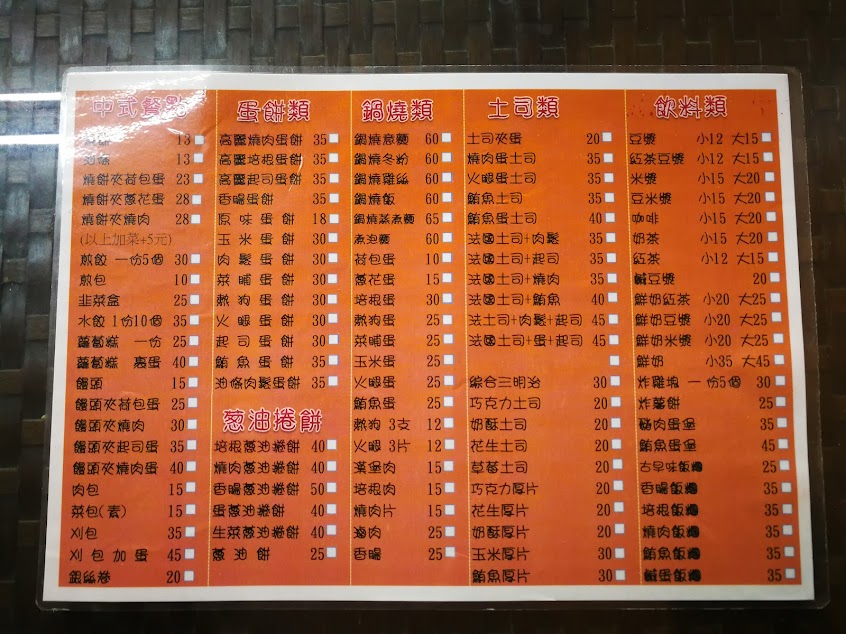 中式餐點
燒餅 13
油條 13
燒餅夾荷包蛋 23
燒餅夾蔥花蛋 28
燒餅夾燒肉 28
(以上加菜+5元)
煎餃 一份5個 30
煎包 10
韭菜盒 25
水餃 1份10個 35
蘿蔔糕 一份 25
蘿蔔糕 裹蛋 40
饅頭 15
饅頭夾荷包蛋 25
饅頭夾燒肉 30
饅頭夾起司蛋 35
饅頭夾燒肉蛋 40
肉包 15
菜包(素) 15
刈包 35
刈包加蛋 45
銀絲卷 20
蛋餅類
高麗燒肉蛋餅 35
高麗培根蛋餅 35
高麗起司蛋餅 35
香腸蛋餅 35
原味蛋餅 18
玉米蛋餅 30
肉鬆蛋餅 30
菜脯蛋餅 30
熱狗蛋餅 30
火腿蛋餅 30
起司蛋餅 30
鮪魚蛋餅 35
油條肉鬆蛋餅 35
蔥油捲餅
培根蔥油捲餅 40
燒肉蔥油捲餅 40
香腸蔥油捲餅 50
蛋蔥油捲餅 40
生菜蔥油捲餅 40
蔥油餅 25
鍋燒類
鍋燒意麵 60
鍋燒冬粉 60
鍋燒雞絲 60
鍋燒飯 60
鍋燒蒸煮麵 65
煮泡麵 60
荷包蛋 10
蔥花蛋 15
培根蛋 30
熱狗蛋 25
菜脯蛋 25
玉米蛋 25
火腿蛋 25
鮪魚蛋 25
熱狗 3支 12
火腿 3片 12
漢堡肉 15
培根肉 15
燒肉片 15
滷肉 25
香腸 25
土司類
土司夾蛋 20
燒肉蛋土司 35
火腿蛋土司 35
鮪魚土司 35
鮪魚蛋土司 40
法國土司+肉鬆 35
法國土司+起司 35
法國土司+燒肉 35
法國土司+鮪魚 40
法土司+肉鬆+起司 45
法國土司+蛋+起司 45
綜合三明治 30
巧克力土司 20
奶酥土司 20
花生土司 20
草莓土司 20
巧克力厚片 20
花生厚片 20
奶酥厚片 20
玉米厚片 30
鮪魚厚片 30
飲料類
豆漿 小12 大15
紅茶豆漿 小12 大15
米漿 小15 大20
豆米漿 小15 大20
咖啡 小15 大20
奶茶 小15 大20
紅茶 小12 大15
鹹豆漿 20
鮮奶紅茶 小20 大25
鮮奶豆漿 小20 大25
鮮奶米漿 小20 大25
鮮奶 小35 大45
炸雞塊 一份5個 30
炸薯餅 25
豬肉蛋堡 35
鮪魚蛋堡 45
古早味飯糰 25
香腸飯糰 35
培根飯糰 35
燒肉飯糰 35
鮪魚飯糰 35
鹹蛋飯糰 35